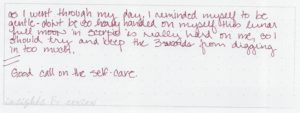 as I went through my day, I reminded myself to be
gentle - don't be so heavy handed on myself this lunar
full moon in scorpio is really hard on me, so I
should try and keep the 3 swords from digging
in too much.
Good call on the self-care.